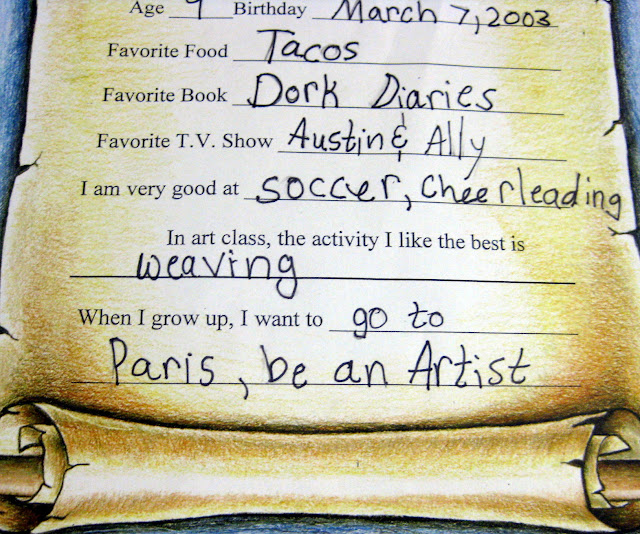 Age 9 Birthday March 7, 2003
Favorite Food Tacos
Favorite Book Dork Diaries
Favorite T.V. Show Austin & Ally
I am very good at soccer, cheerleading
In art class, the activity I like the best is
weaving
When I grow up, I want to go to
Paris, be an Artist